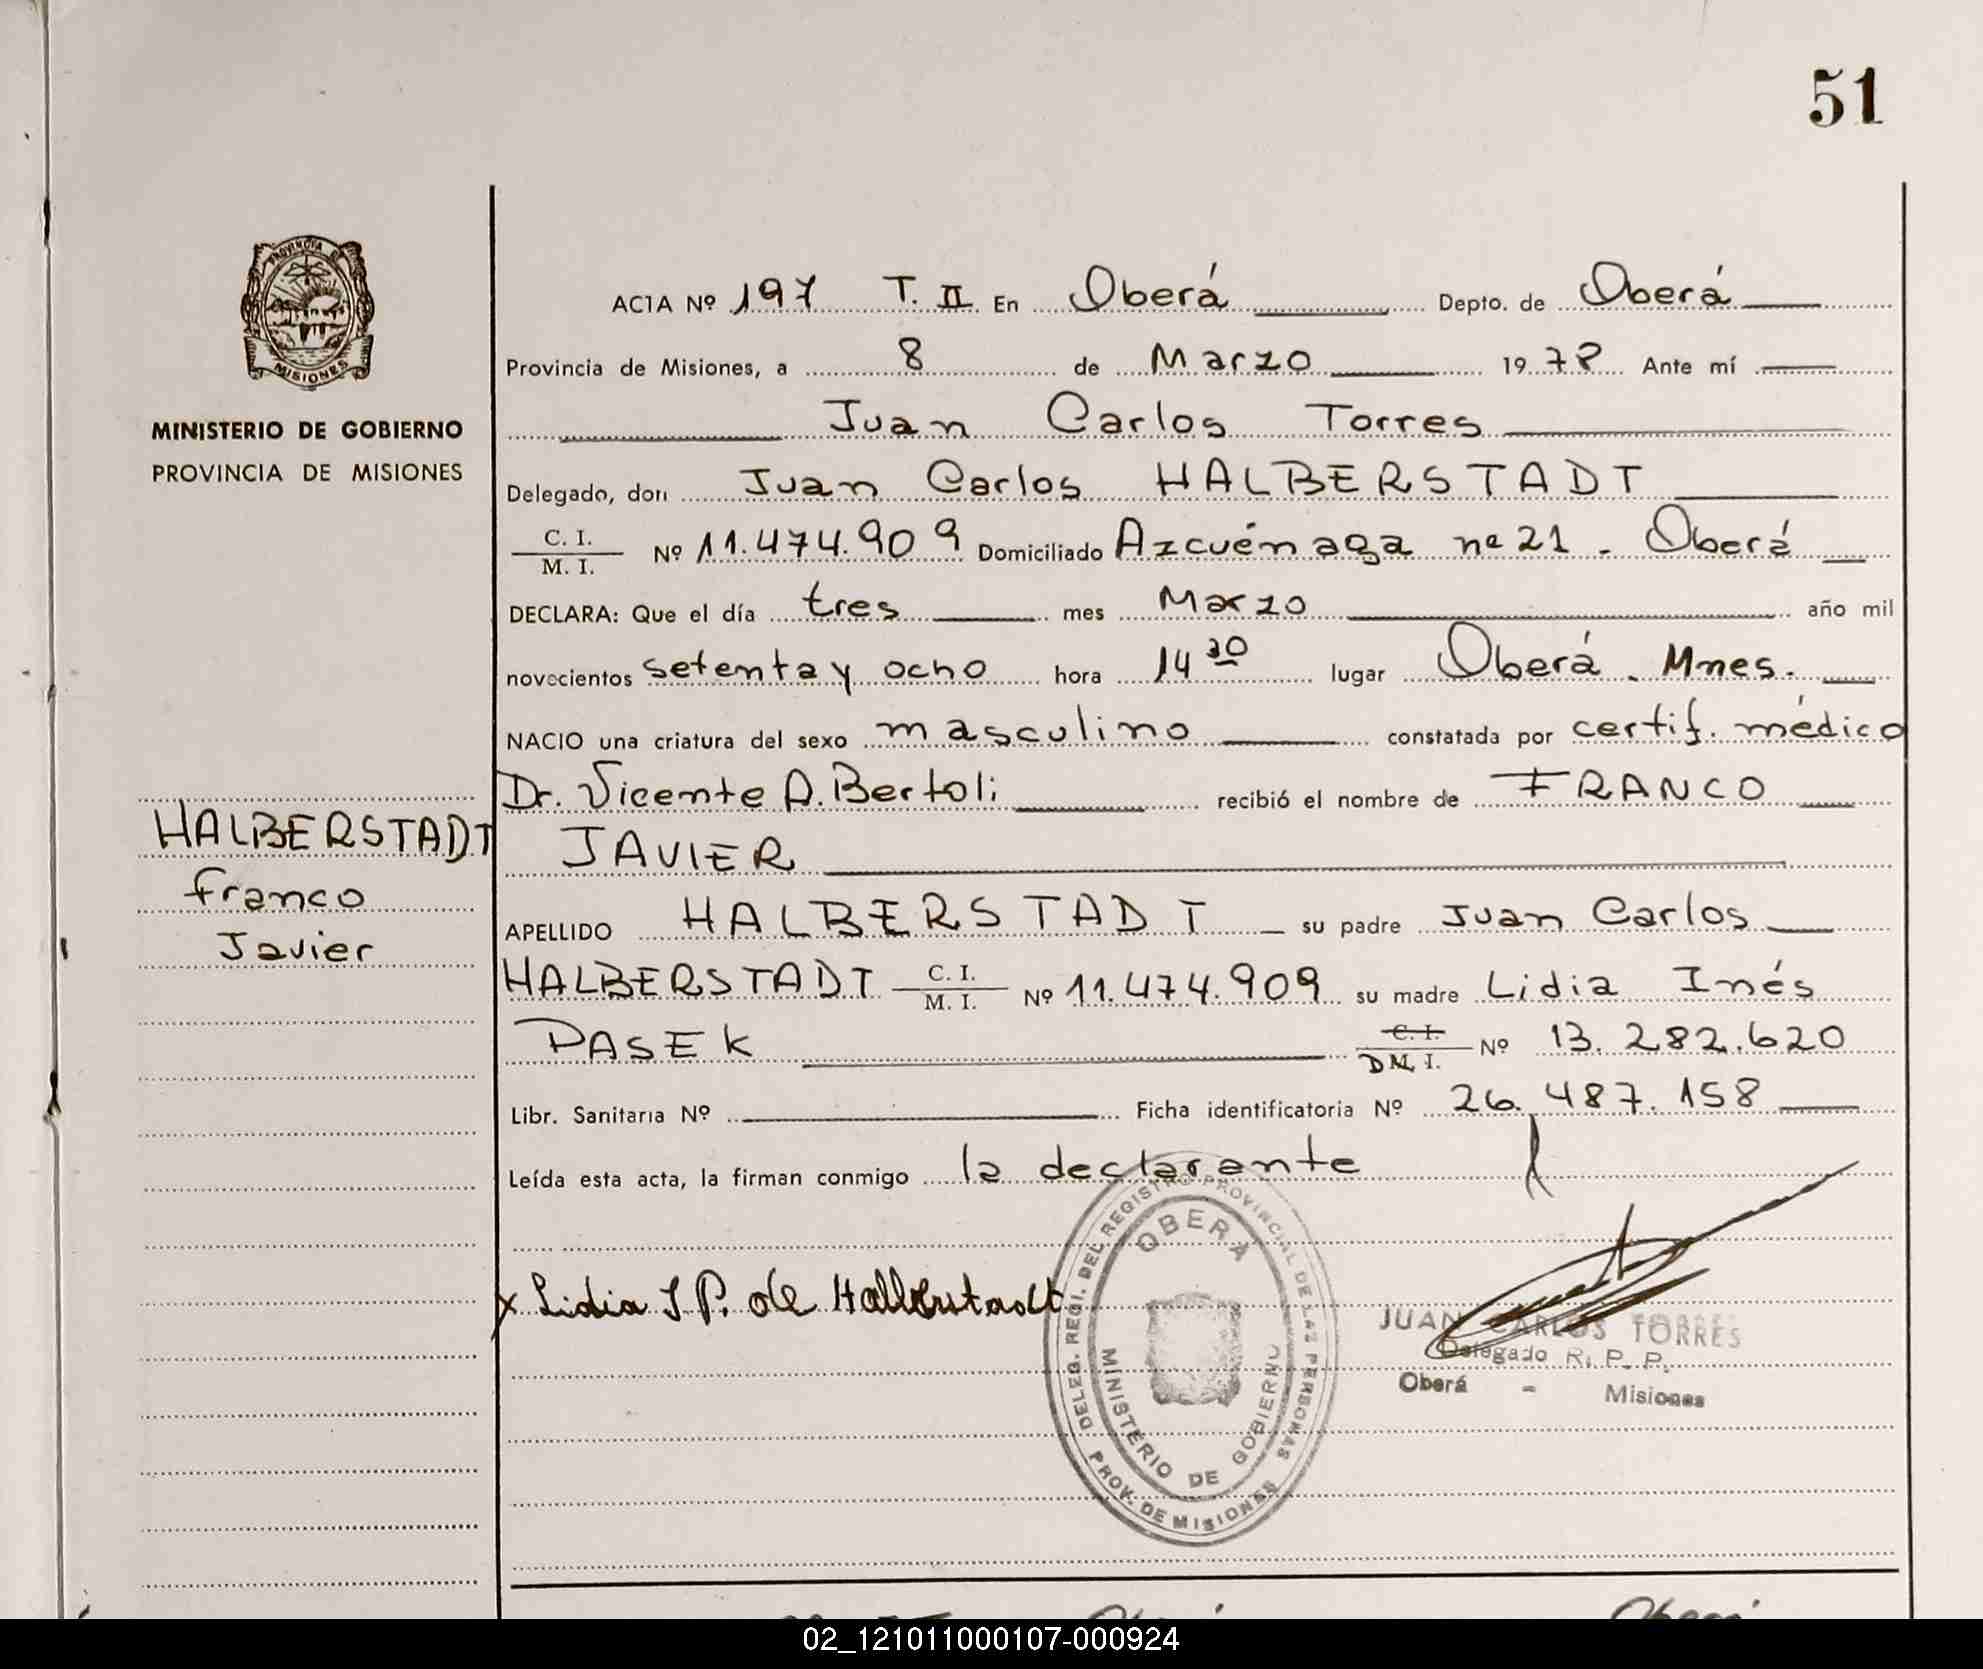 51
PROVINCIA DE
MISIONES
MINISTERIO DE GOBIERNO
PROVINCIA DE MISIONES
HALBERSTADT
Franco
Javier
ACTA Nº 197 T. II En Oberá Depto. de Oberá
Provincia de Misiones, a 8 de Marzo 1978 Ante mí
Juan Carlos Torres
Delegado, don Juan Carlos HALBERSTADT
C. I.
M. I. Nº 11.474.909 Domiciliado Azcuénaga nº 21 - Oberá
DECLARA: Que el día tres mes Marzo año mil
novecientos setenta y ocho hora 14 30 lugar Oberá. Mnes.
NACIO una criatura del sexo masculino constatada por certif. médico
Dr. Vicente A. Bertoli recibió el nombre de FRANCO
JAVIER
APELLIDO HALBERSTADT su padre Juan Carlos
HALBERSTADT C. I.
M. I. Nº 11.474.909 su madre Lidia Inés
PASEK C. I.
D M. I. Nº 13.282.620
Libr. Sanitaria Nº Ficha identificatoria Nº 26.487.158
Leída esta acta, la firman conmigo la declarante
x Lidia I P. de Halberstadt
DELEG. REGI. DEL REGISTRO PROVINCIAL DE LAS PERSONAS
OBERÁ
MINISTERIO DE GOBIERNO
PROV. DE MISIONES
JUAN CARLOS TORRES
Delegado R. P. P.
Oberá - Misiones
02_121011000107-000924